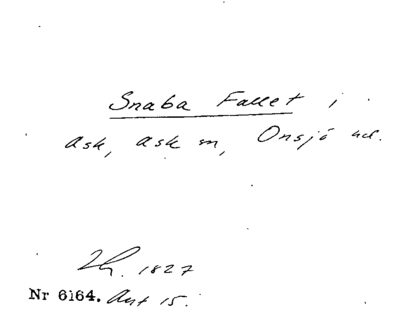 Snaba Fallet i
ask, ask sn, Onsjö hd.
Lh. 1827
Nr 6164. Ant 15.